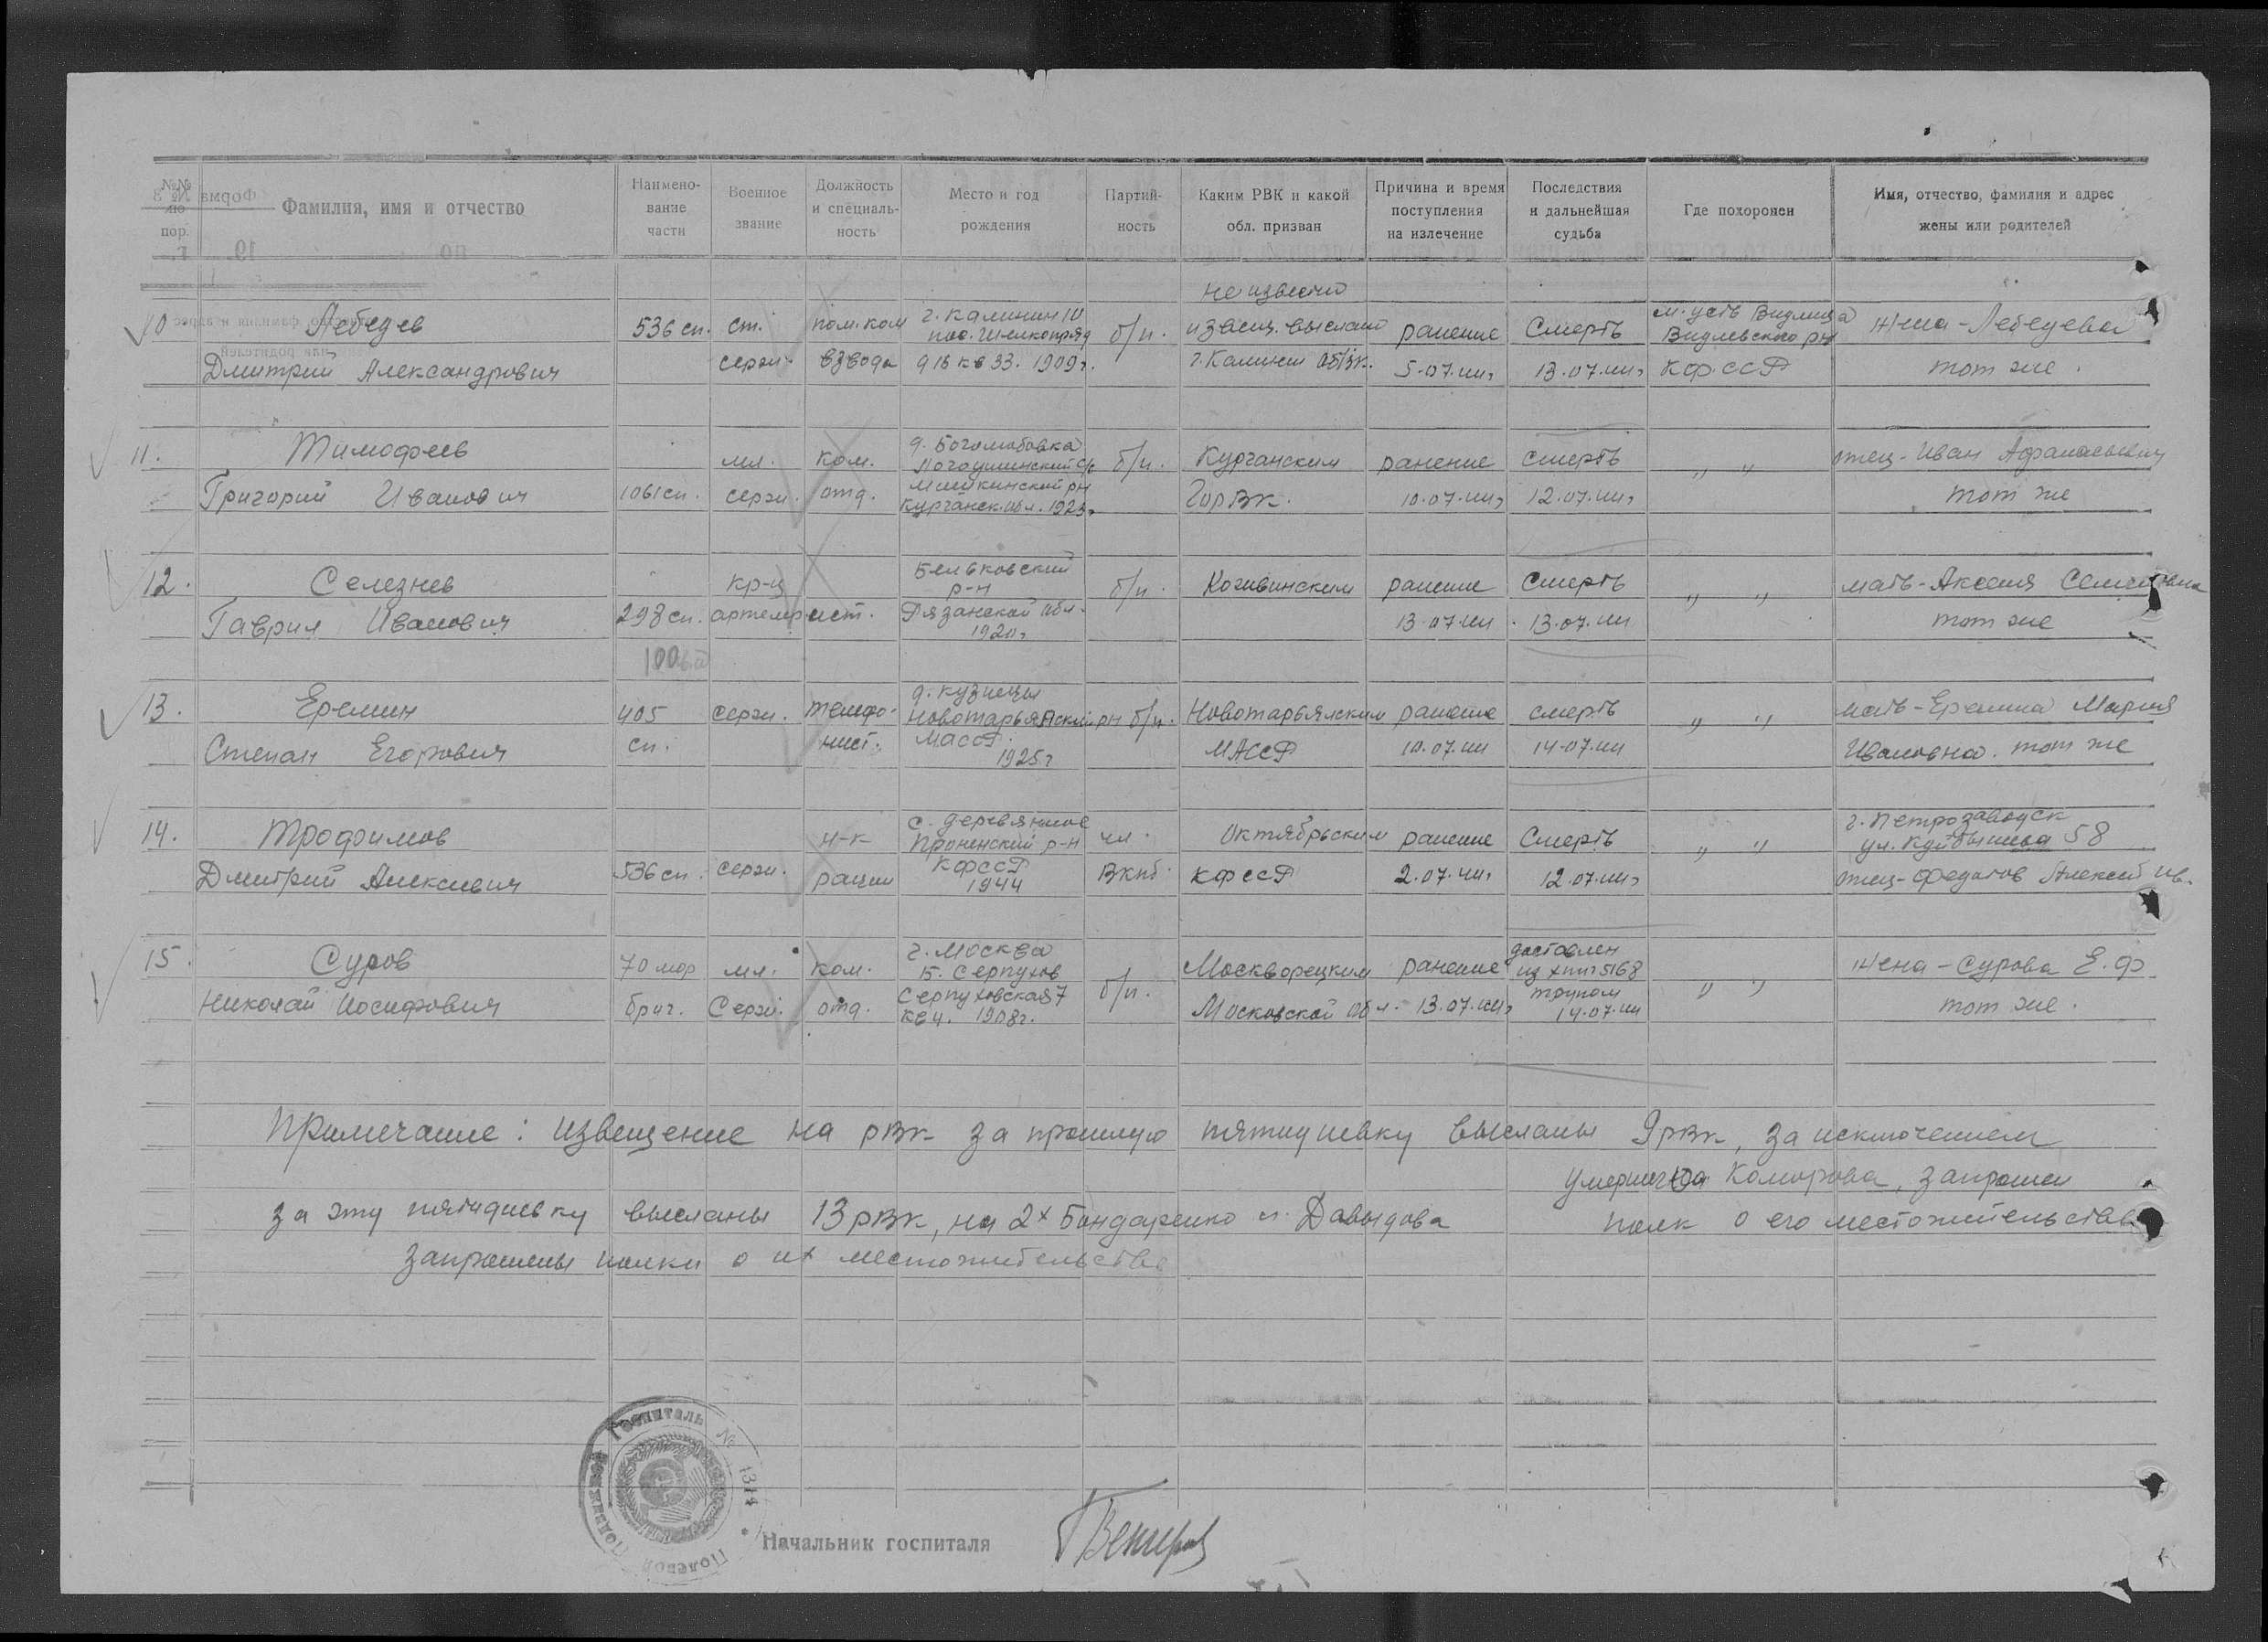 №№ по пор.
Фамилия, имя и отчество
Наимено-вание части
Военное звание
Должность и специаль-ность
Место и год рождения
Партий-ность
Каким РВК и какой обл. призван
Причина и время поступления на излечение
Последствия и дальнейшая судьба
Где похоронен
Имя, отчество, фамилия и адрес жены или родителей
не известно
10 Лебедев 536 сп. ст. пом. ком г. Калинин 10 б/п. извещ. выслано ранение Смерть м. усть Видлица жена - Лебедева
пос. Шелкопряд Видлевского рн
Дмитрий Александрович сержи. взвода д 18 кв 33. 1909г. г. Калинин ОблВк. 5.07.44г 13.07.44г КФССР тот же.
11. Тимофеев мл. ком. д. Боголюбовка б/п. Курганским ранение смерть " " отец - Иван Афанасьевич
Григорий Иванович 1061 сп. сержи. отд. Мишкинский рн ГорВк. 10.07.44г 12.07.44г тот же
Курганск. обл. 1923г
12. Селезнев кр-ц Бельковский р-н б/п. ранение Смерть " " мать - Аксения Семеновна
Гаврил Иванович 298 сп. артелерист. Рязанской обл. 13.07.44 13.07.44 тот же
1920г
100
13. Еремин 405 сержи. телефо- д. Кузнецы б/п. Новоторьялским ранение смерть " " мать - Еремина Мария
Новоторьялский рн
Степан Егорович сп. нист. МАССР. МАССР 10.07.44 14.07.44 Ивановна. тот же
1925г
14. Трофимов н-к с. деревянное чл. Октябрьским ранение Смерть " " г. Петрозаводск
р-н ул. Куйбышева 58
Дмитрий Алексеевич 536 сп. сержи. рации КФССР ВКПб. КФССР 2.07.44г 12.07.44г отец - Алексей Ив.
1944
15. Суров 70 мор мл. ком. г. Москва б/п. Москворецким ранение доставлен " " жена - Сурова Е.Ф
Б. Серпухов из хппг 5168
Николай Иосифович бриг. Сержи. отд. Серпуховская 7 Московской обл. 13.07.44г трупом тот же.
кв 4. 1908г. 14.07.44
Примечание: извещение на рвк за прошлую пятидневку высланы 9 рвк, за исключением
умершего Комарова, запрошен
за эту пятидневку высланы 13 рвк, на 2х Бондаренко и Давыдова полк о его местожительстве
запрошены полки о их местожительстве
Полевой Подвижной Госпиталь № 1314
Начальник госпиталя